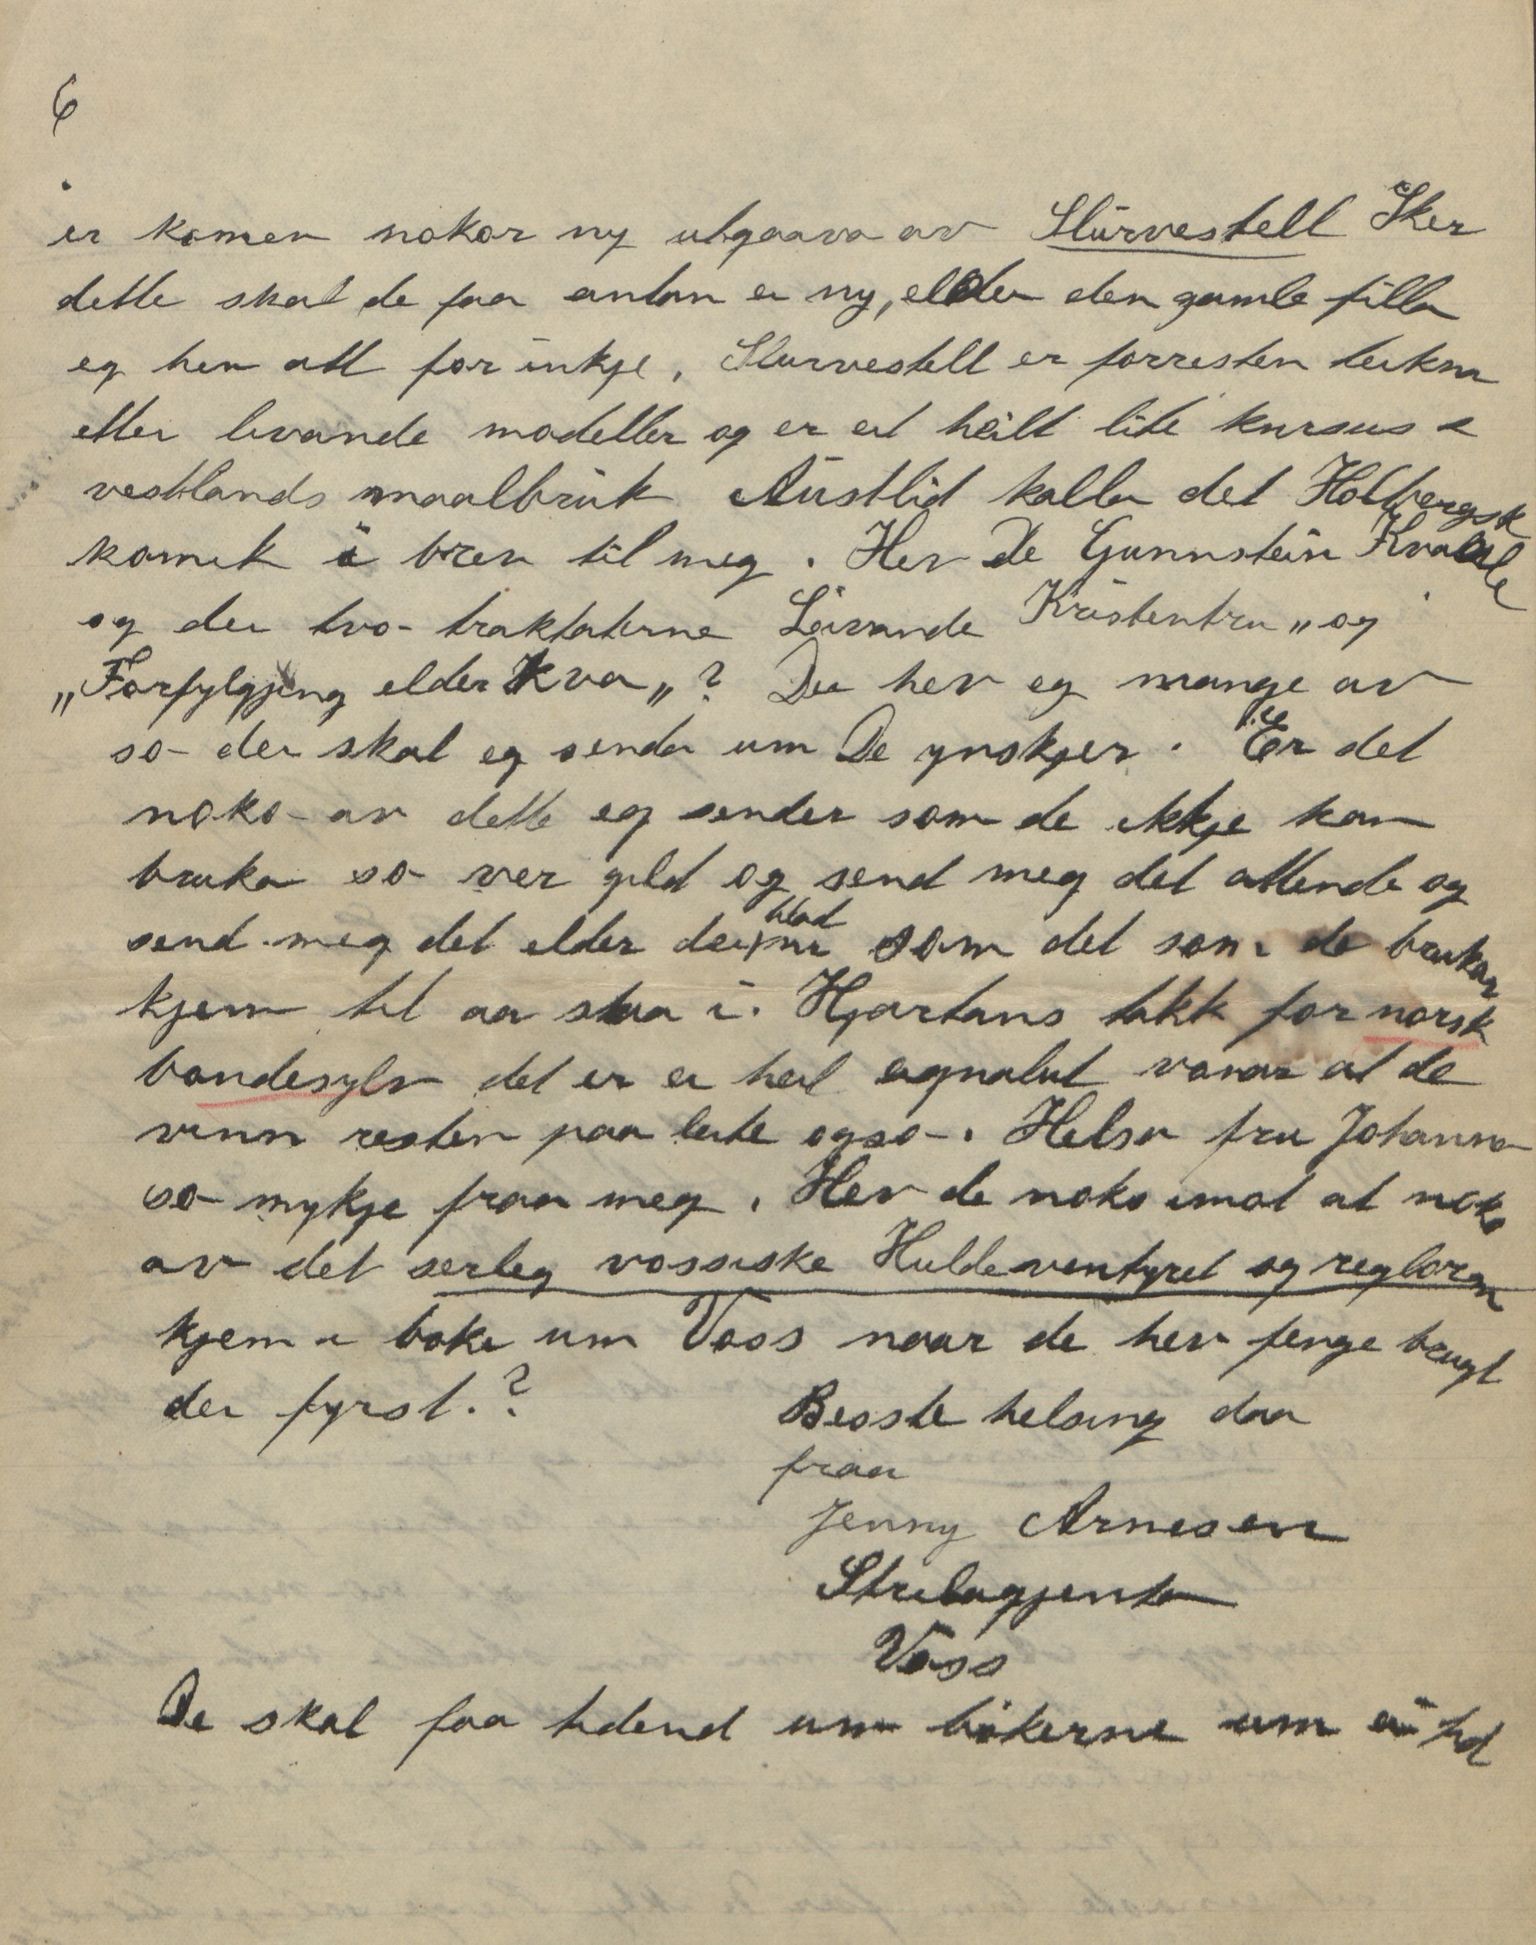 6
er komen nokor ny utgaava av Slurvestell Sker
dette skal de faa antan ei ny, elder den gamle filla
eg hev att for inkje. Slurvestell er forresten teikna
etter levande modeller og er eit heilt lite kursus i
vestlands maalbruk Austlid kallar det Holbergsk
komik i brev til meg. Hev De Gunnstein Kvaale
og dei tvo traktaterne Levande Kristentru„ og
„Forfylgjing elder kva„? Dei hev eg mange av
so dei skal eg senda um De ynskjer. Er det
noko av dette eg sender som de ikkje kan
bruka so ver gild og send meg det attende og
send meg det elder dei blad nr som det som de brukar
kjem til aa staa i. Hjartans takk for norsk
bondesylv det er ei heil ugnalut vonar at de
vinn resten paa leite ogso. Helsa fru Johanna
so mykje fraa meg. Hev de noko imot at noko
av det serleg vossiske Huldeeventyret og reglorne
kjem i boki um Voss naar de hev fenge brugt
dei fyrst.?
Besste helsing daa
fraa
Jenny Arnesen
Strilagjenta
Voss
De skal faa tidend um bøkerne um ei tid